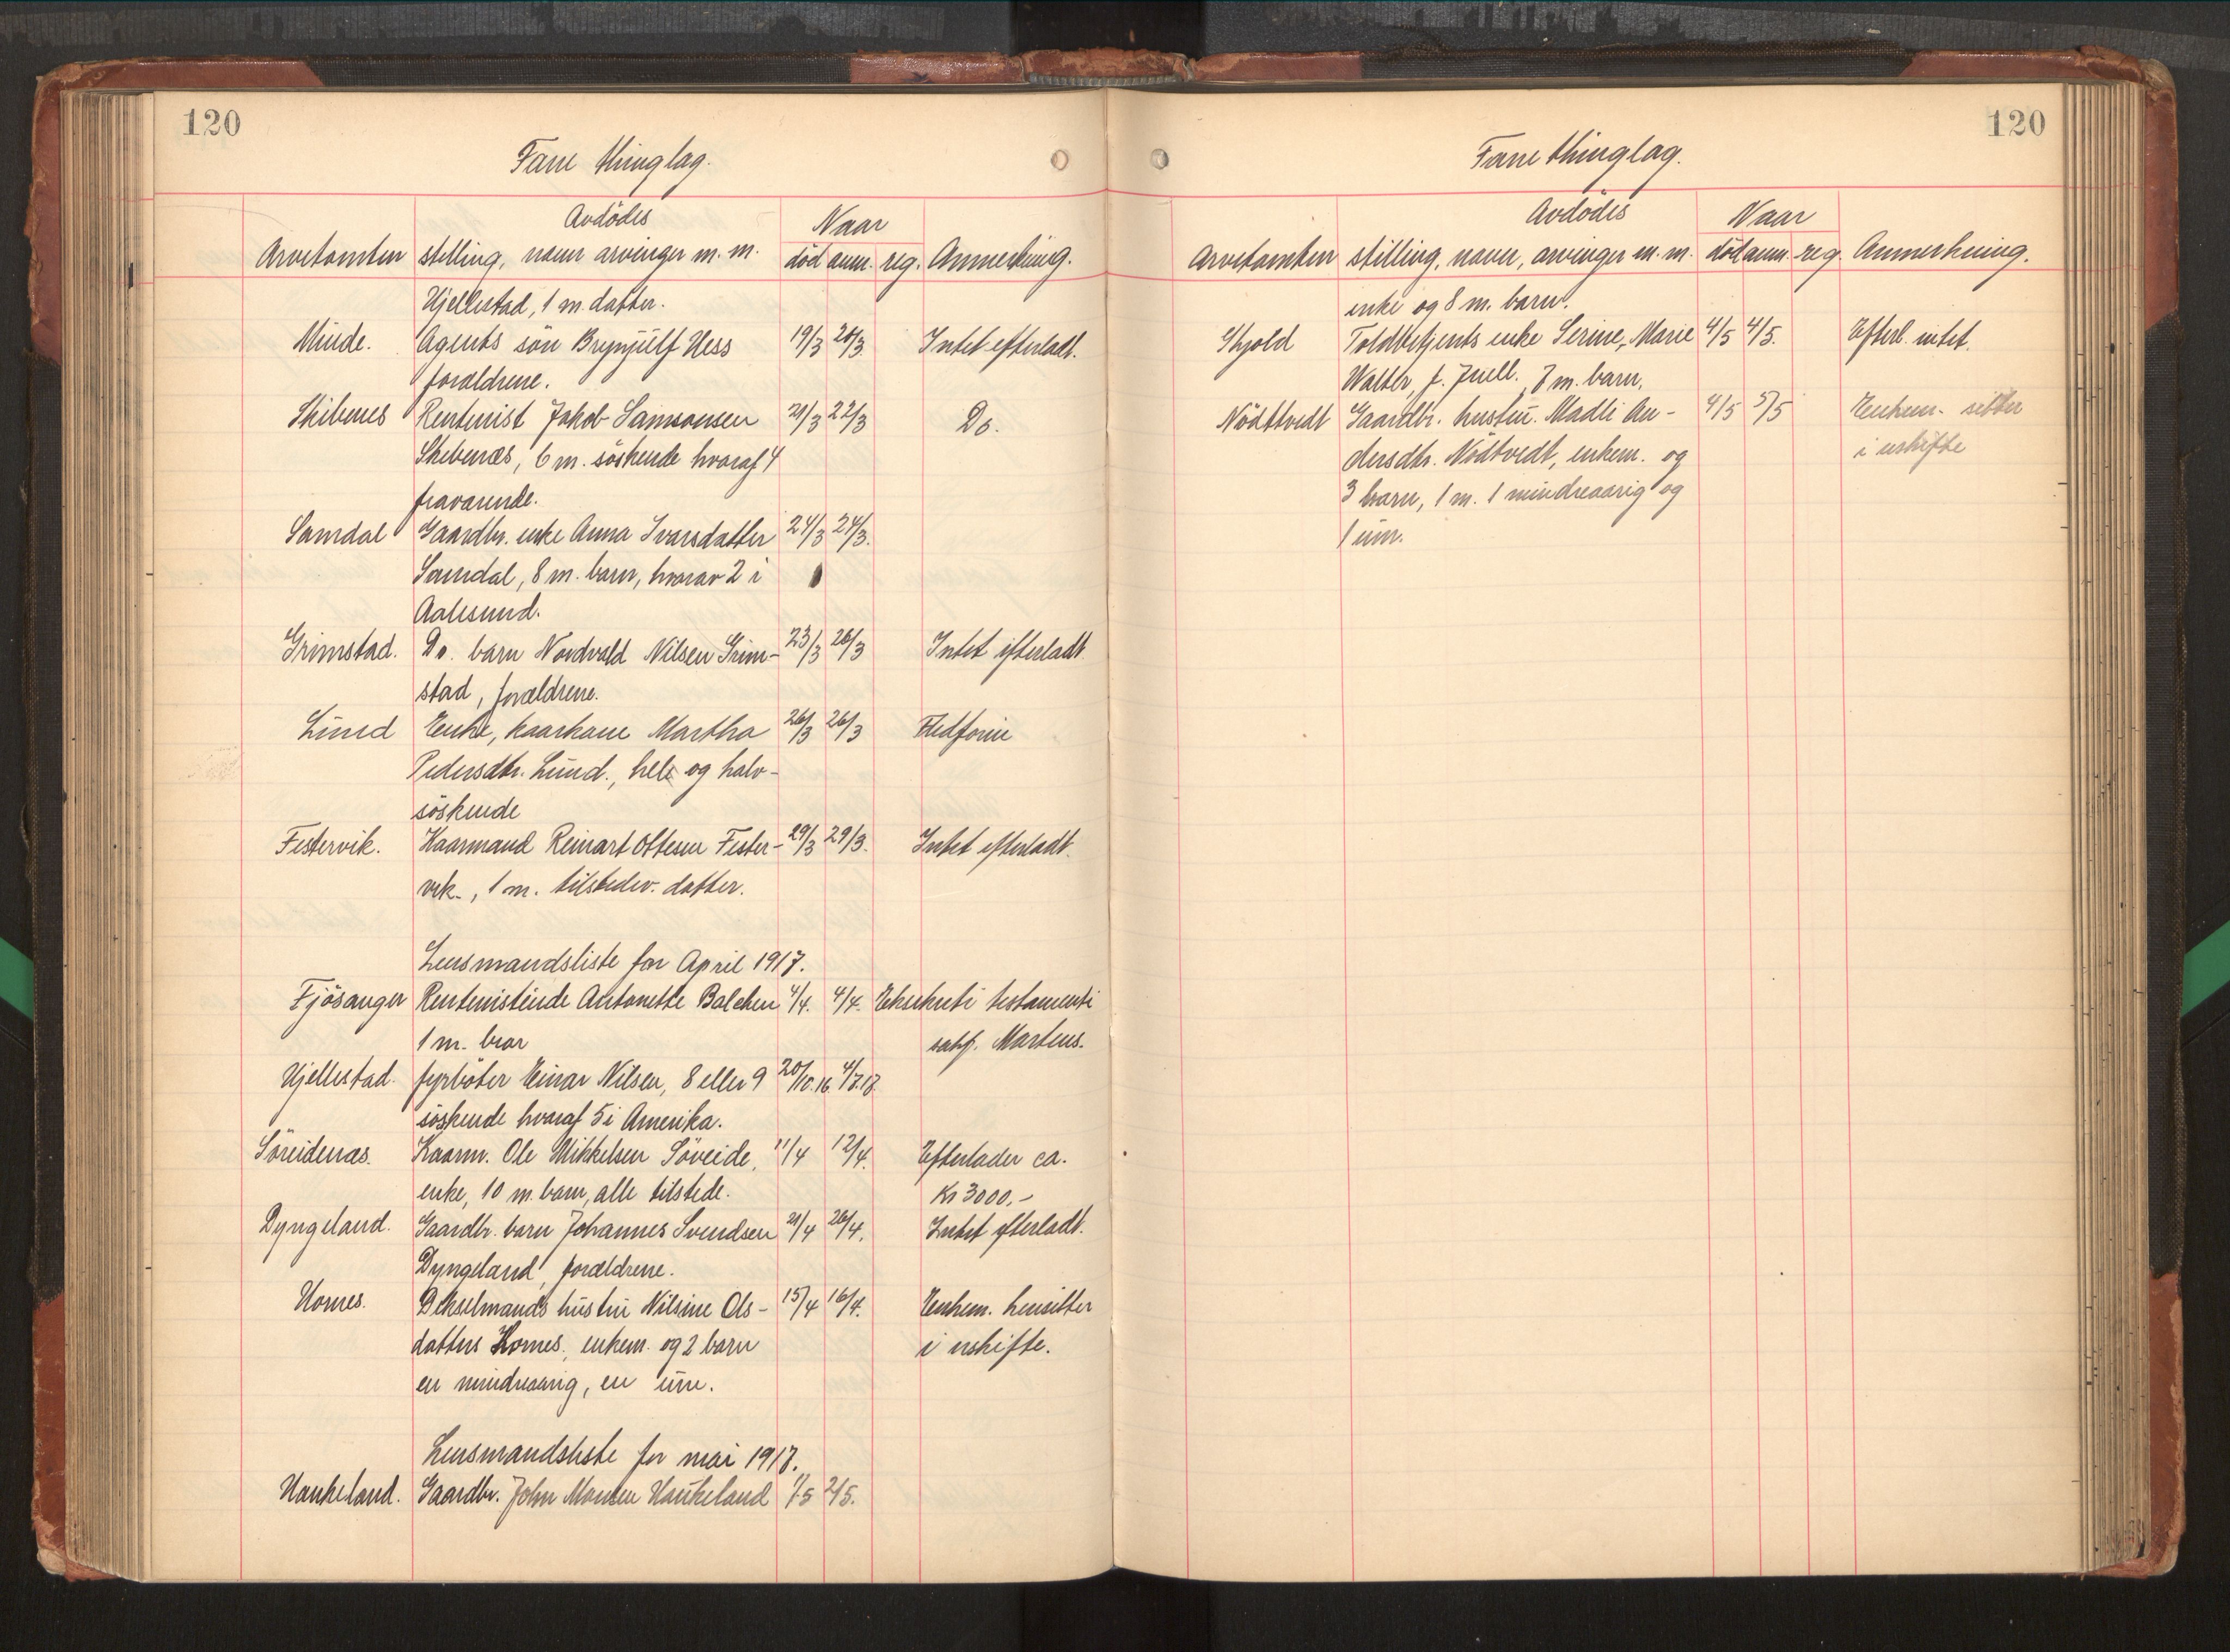 120
Fane thinglag.
Avdödes
Naar
Arvetomten stilling, navn arvinger m. m. död anm. reg. Anmerkning.
Hjellestad, 1 m. datter.
Minde. Agents sön Brynjulf Hess 19/3 20/3 Intet efterladt.
forældrene.
Skibenes Rentenist Jakob Samsonsen 21/3 22/3 Do.
Skibenæs, 6 m. söskende hvoraf 4
fraværende.
Samdal Gaardbr. enke Anna Ivarsdatter 24/3 24/3.
Samdal, 8 m. barn, hvorav 2 i
Aalesund.
Grimstad. Do. barn Nordvald Nilsen Grim- 23/3 26/3 Intet efterladt
stad, forældrene.
Lund Enke, kaarkone Martha 26/3 26/3 Fledforin
Pedersdtr. Lund., hel og halv-
söskende
Festervik. Kaarmand Reinart Ottesen Fester- 29/3 29/3. Intet efterladt.
vik., 1 m. tilstedev. datter.
Lensmandsliste for April 1917.
Fjösanger Rentenistinde Antonette Balchen 4/4. 4/4. Eksekuti testamenti
1 m. bror sakf. Martens.
Hjellestad. fyrböter Einar Nilsen, 8 eller 9 20/10.16. 4/4.17.
söskende hvoraf 5 i Amerika.
Söreidenæs. Kaarm. Ole Mikkelsen Söreide, 11/4 12/4. Efterlader ca.
enke, 10 m. barn, alle tilstede. Kr 3000,-
Dyngeland. Gaardbr. barn Johannes Svendsen 21/4 26/4. Intet efterladt.
Dyngeland, forældrene.
Homes. Dekselmands hustru Nilsine Ols- 15/4 16/4. Enkem. hensitter
datters Homes., enkem. og 2 barn i uskifte.
en mindreaarig, en um.
Lensmandsliste for mai 1917.
Haukeland. Gaardbr. John Monsen Haukeland 1/5 2/5.
120
Fane thinglag.
Avdödes
Naar
Arvetomten stilling, navn, arvinger m. m. död anm. reg. Anmerkning.
enke og 8 m. barn.
Skjold Toldbetjents enke Serine, Marie 4/5 4/5. Efterl. intet.
Walter, f. Juell. 7 m. barn.
Nödttvedt Gaardbr. hustru. Madli An- 4/5 5/5 Enkem. sitter
dersdtr. Nödtvedt, enkem. og i uskifte
3 barn, 1 m. 1 mindreaarig og
1 um.